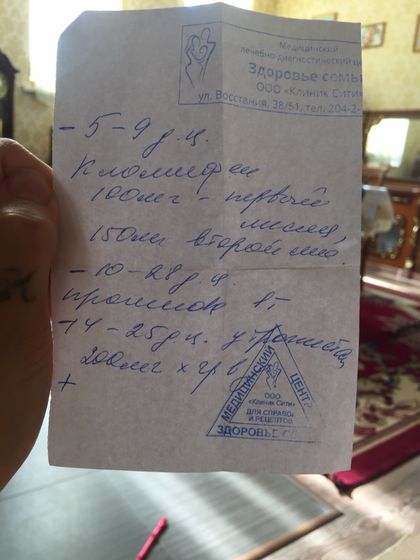 Медицинский
лечебно-диагностический це
Здоровье семьи
ООО «Клиник Сити»
ул. Восстания, 38/51, тел. 204-2
- 5-9 д.ц.
Кломифен
100мг - первый
месяц,
150мг второй
- 10-28 д.ц.
1т
14-25 д.ц. утрожестан
200мг х
+
МЕДИЦИНСКИЙ
ЦЕНТР
ООО
«Клиник Сити»
ДЛЯ СПРАВОК
И РЕЦЕПТОВ
ЗДОРОВЬЕ С